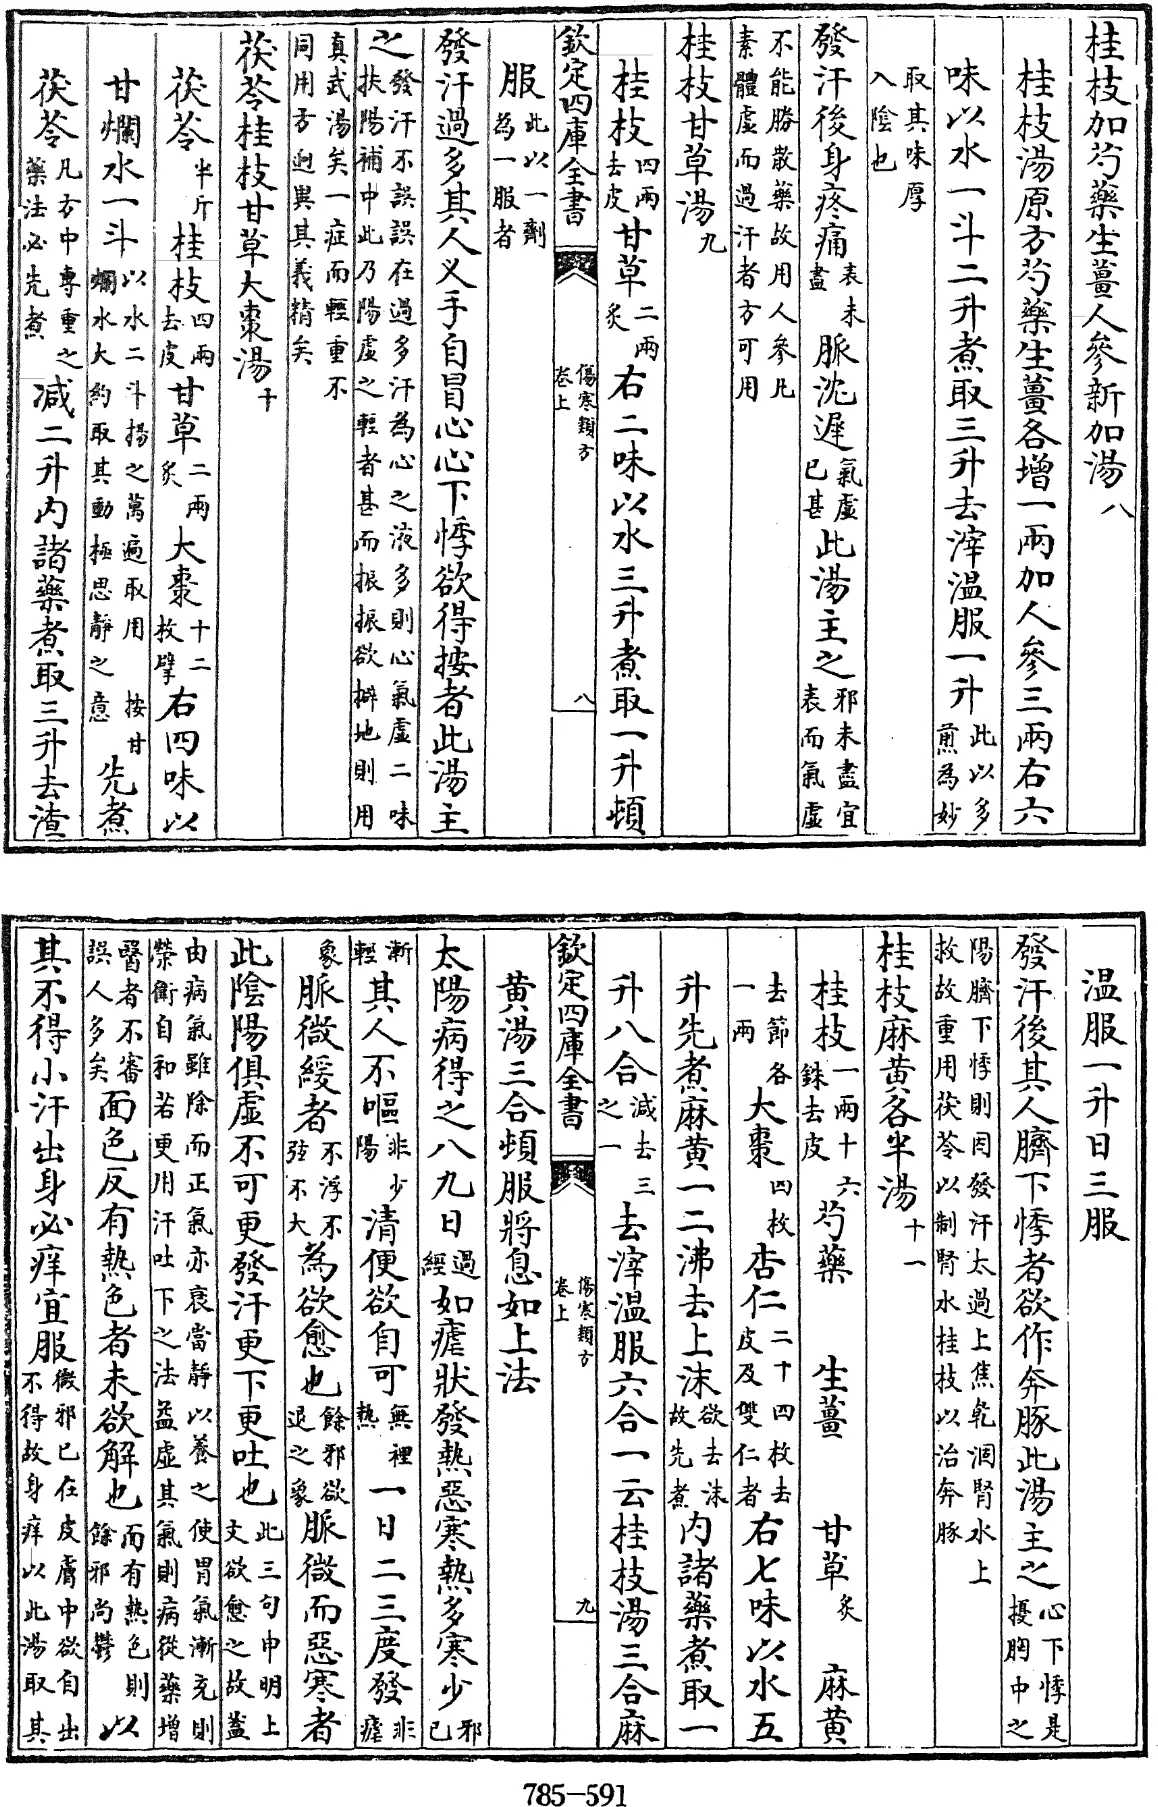 桂枝加芍藥生薑人參新加湯八
桂枝湯原方芍藥生薑各增一兩加人參三兩右六
味以水一斗二升煮取三升去滓溫服一升此以多煎為妙
取其味厚入陰也
發汗後身疼痛表未盡脈沈遲氣虛已甚此湯主之邪未盡宜表而氣虛
不能勝散藥故用人參凡素體虛而過汗者方可用
桂枝甘草湯九
桂枝四兩去皮甘草二兩炙右二味以水三升煮取一升頓
欽定四庫全書
傷寒類方
卷上
八
服此以一劑為一服者
發汗過多其人叉手自冒心心下悸欲得按者此湯主
之發汗不誤誤在過多汗為心之液多則心氣虛二味扶陽補中此乃陽虛之輕者甚而振振欲擗地則用
真武湯矣一症而輕重不同用方迥異其義精矣
茯苓桂枝甘草大棗湯十
茯苓半斤桂枝四兩去皮甘草二兩炙大棗十二枚擘右四味以
甘爛水一斗以水二斗揚之萬遍取用 按甘爛水大約取其動極思靜之意先煮
茯苓凡方中專重之藥法必先煮減二升內諸藥煮取三升去渣
溫服一升日三服
發汗後其人臍下悸者欲作奔豚此湯主之心下悸是擾胸中之
陽臍下悸則因發汗太過上焦乾涸腎水上救故重用茯苓以制腎水桂枝以治奔豚
桂枝麻黃各半湯十一
桂枝一兩十六銖去皮芍藥 生薑 甘草炙 麻黃
去節各一兩大棗四枚杏仁二十四枚去皮及雙仁者右七味以水五
升先煮麻黃一二沸去上沫欲去沫故先煮內諸藥煮取一
升八合減去三之一去滓溫服六合一云桂枝湯三合麻
欽定四庫全書
傷寒類方
卷上
九
黃湯三合頓服將息如上法
太陽病得之八九日過經如瘧狀發熱惡寒熱多寒少邪已
漸輕其人不嘔非少陽清便欲自可無裡熱一日二三度發非瘧
象脈微緩者不浮不弦不大為欲愈也餘邪欲退之象脈微而惡寒者
此陰陽俱虛不可更發汗更下更吐也此三句申明上文欲愈之故蓋
由病氣雖除而正氣亦衰當靜以養之使胃氣漸充則榮衛自和若更用汗吐下之法益虛其氣則病從藥增
醫者不審誤人多矣面色反有熱色者未欲解也而有熱色則餘邪尚鬱以
其不得小汗出身必痒宜服微邪已在皮膚中欲自出不得故身痒以此湯取其
785-591